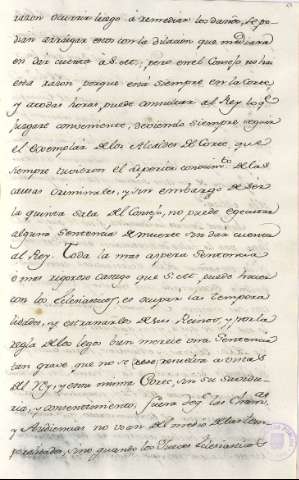 razon ocurrir luego à remediar los daños, se po
dian arraigar estos con la dilacion que mediara
en dar cuenta à S.M., pero en el Consejo no hai
esta razon, porque está siempre en la Corte,
y a todas horas, puede consultar al Rey lo q.e
juzgare conveniente, deviendo siempre seguir
el exemplar de los Alcaldes de Corte, que
siempre tuvieron el superior conocim.to de las
causas criminales, y sin embargo de ser
la quinta sala del Consejo, no puede ejecutar
alguna sentencia de muerte sin dar cuenta
al Rey. Toda la mas aspera sentencia
o mas rigoroso castigo que S.M. puede hacer
con los eclesiasticos, es ocupar las tempora
lidades, y estrañarlos de sus Reinos, y por la
regla de los legos bien merece una sentencia
tan grave que no se resuelva à vista
del Rey, y en la misma Corte, sin su sabidu
ria, y consentimiento, fuera de q.e las Chan.as
y Audiencias no usan del medio de las tem
poralidades, sino quando los Jueces Eclesiasticos